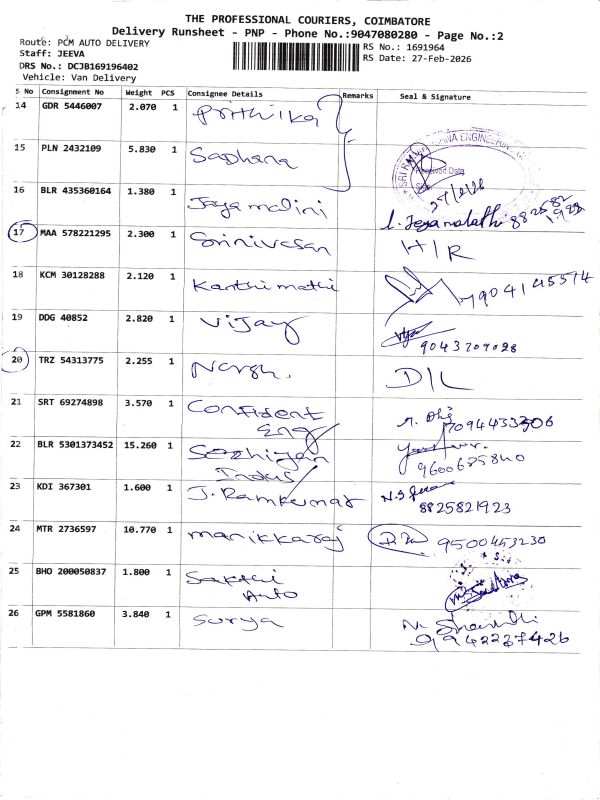 THE PROFESSIONAL COURIERS, COIMBATORE
Delivery Runsheet - PNP - Phone No.:9047080280 - Page No.:2
Route: PCM AUTO DELIVERY
Staff: JEEVA
DRS No.: DCJB169196402
Vehicle: Van Delivery
RS No.: 1691964
RS Date: 27-Feb-2026
S No Consignment No Weight PCS Consignee Details Remarks Seal & Signature
14 GDR 5446007 2.070 1 Prithika
15 PLN 2432109 5.830 1 Sadhana
Received Date
27/2/26
16 BLR 435360164 1.380 1 Jaya malini
17 MAA 578221295 2.300 1 Srinivasan H/R
18 KCM 30128288 2.120 1 Kanthimathi
19 DDG 40852 2.820 1 Vijay
9043709028
20 TRZ 54313775 2.255 1 D/L
21 SRT 69274898 3.570 1 Confident
Eng
7094453306
22 BLR 5301373452 15.260 1 Sozhiyan
Indus
9600685840
23 KDI 367301 1.600 1 J. Ramkumar
8825821923
24 MTR 2736597 10.770 1 manikkaraj 9500453230
25 BHO 200050837 1.800 1 Sakthi
Auto
26 GPM 5581860 3.840 1 Surya
9942237426